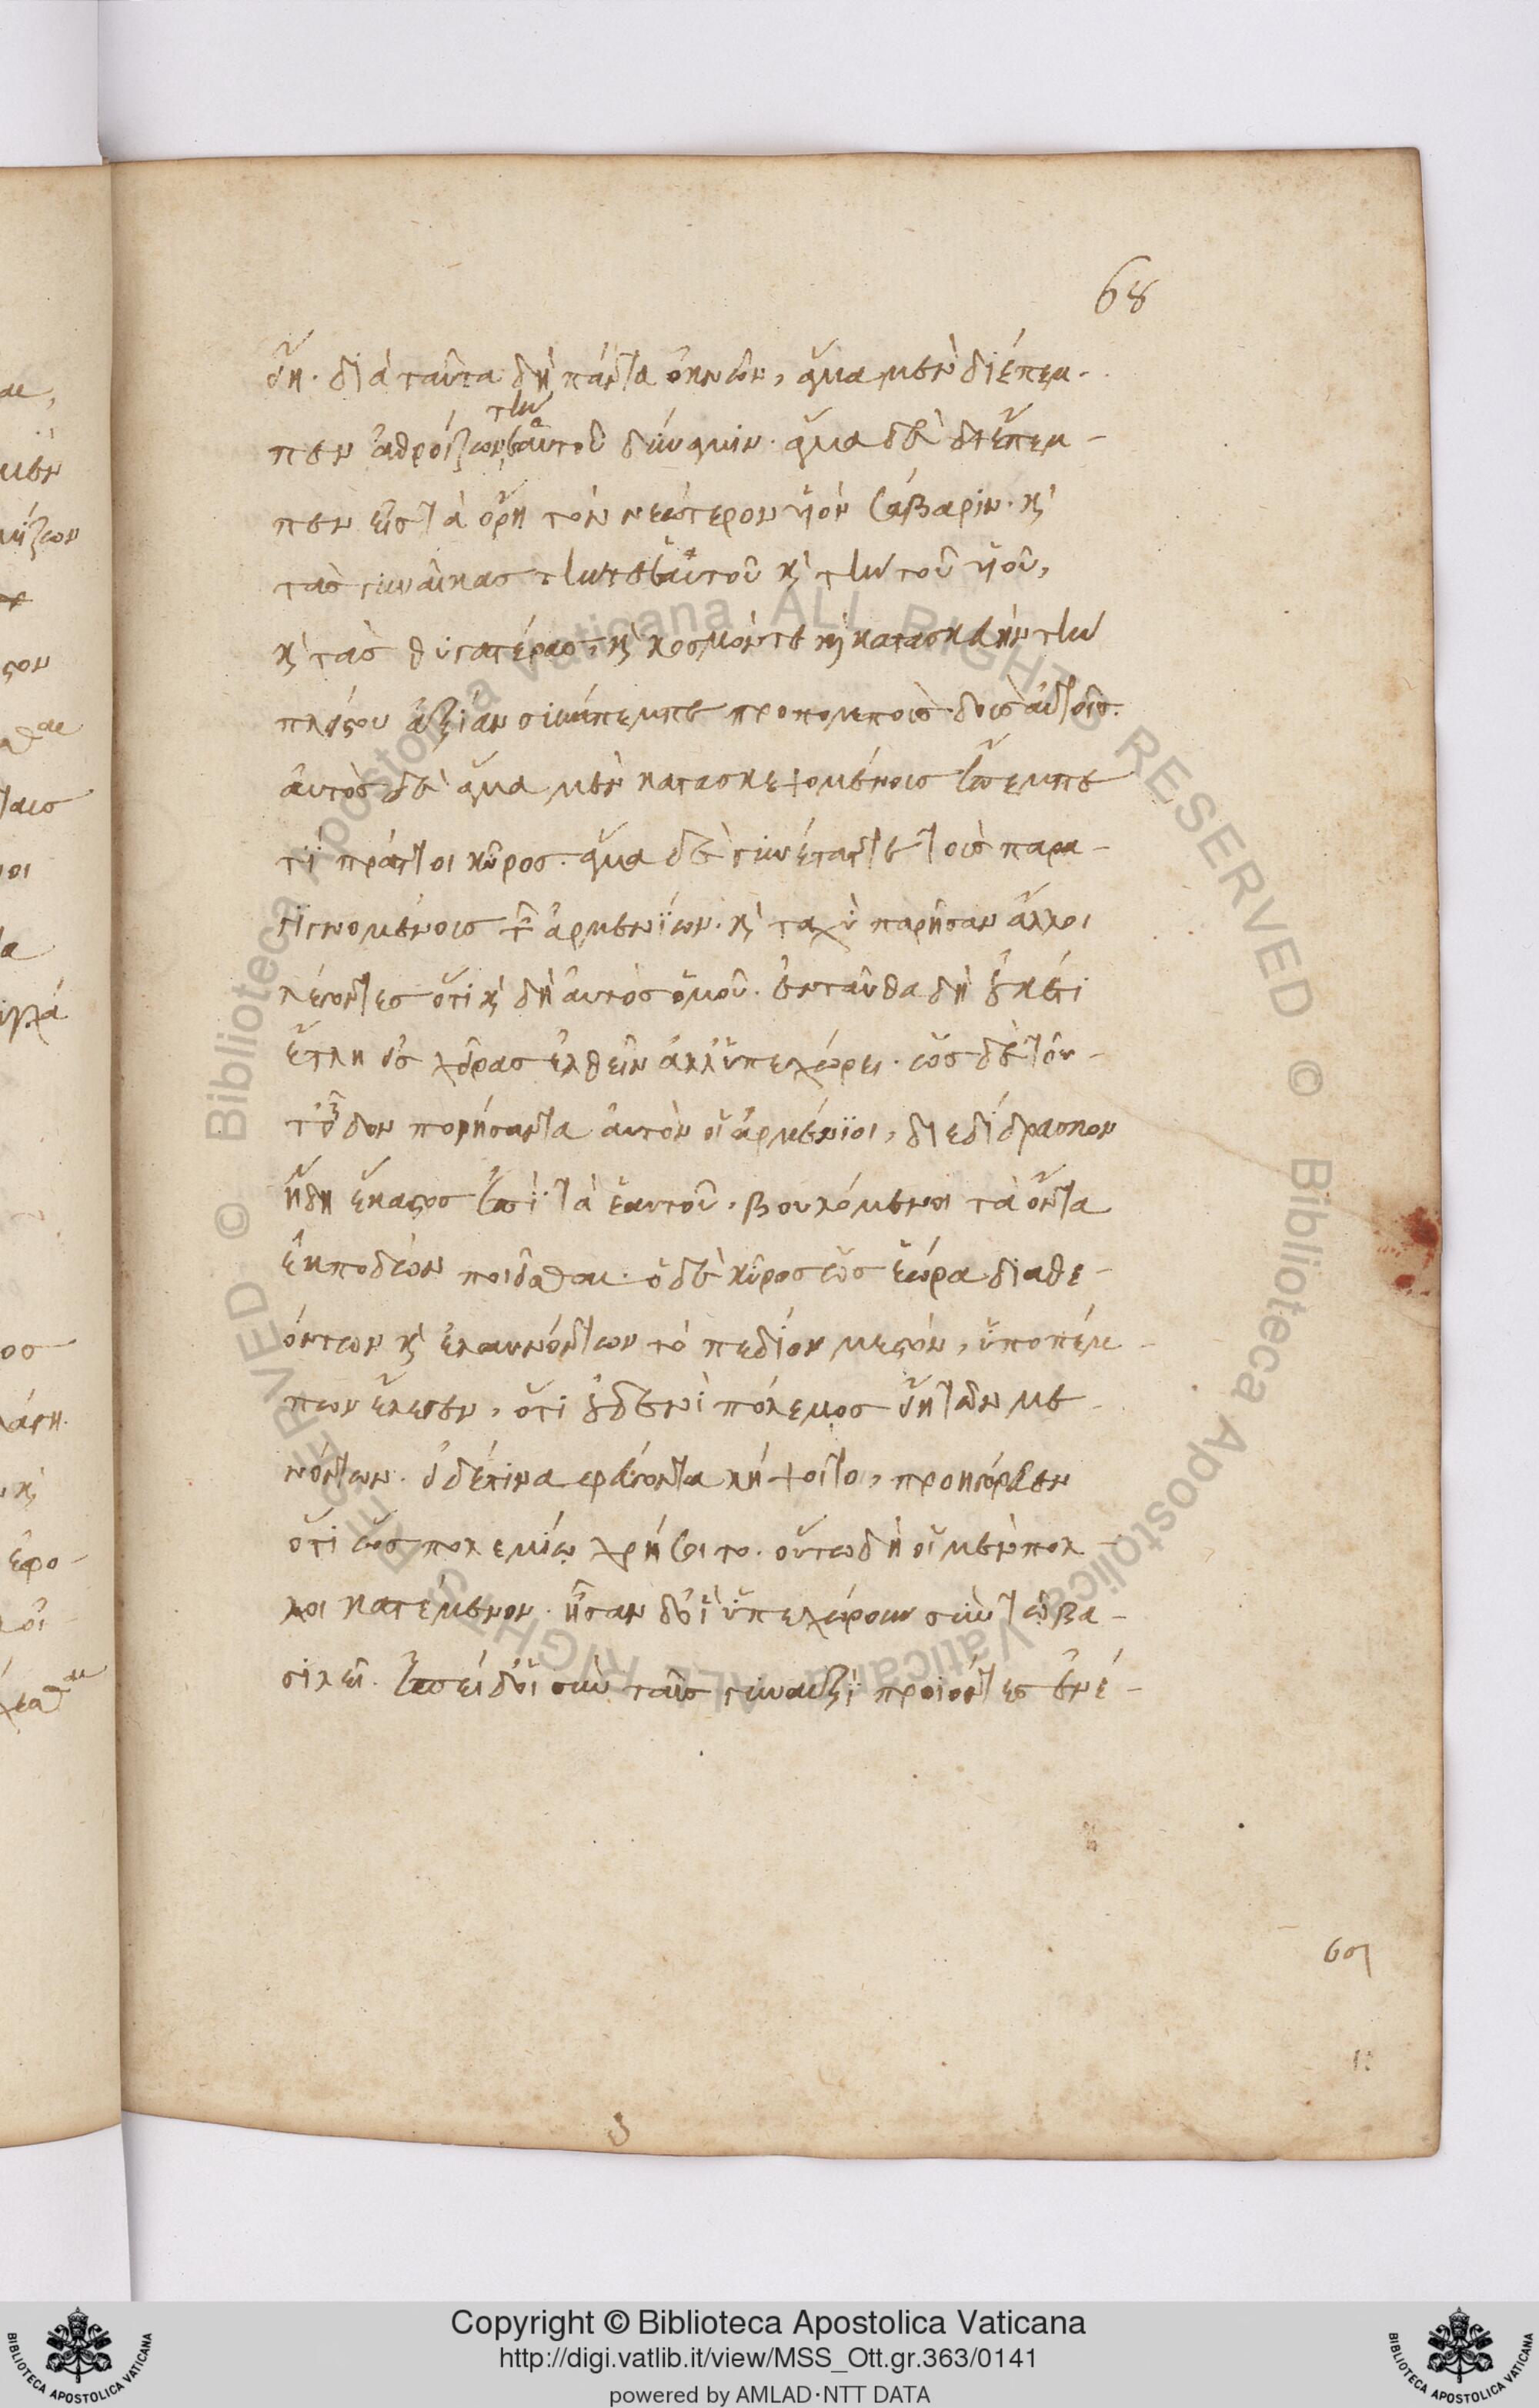 68
ἔχῃ. διὰ ταῦτα δὴ πάντα ὀκνῶν, ἅμα μὲν διέπεμ-
πεν ἀθροίζων τὴν ἑαυτοῦ δύναμιν. ἅμα δὲ διέπεμ-
πεν εἰς τὰ ὄρη τὸν νεώτερον υἱὸν σάβαριν. καὶ
τὰς γυναῖκας τήν τε ἑαυτοῦ καὶ τὴν τοῦ υἱοῦ,
καὶ τὰς θυγατέρας, καὶ κόσμόν τε καὶ κατασκευὴν τὴν
πλείστου ἀξίαν συνέπεμπε προπομποὺς δοὺς αὐτοῖς.
αὐτὸς δὲ ἅμα μὲν κατασκεψομένους ἔπεμπε
τί πράττοι κῦρος. ἅμα δὲ συνέταττε τοὺς παρα-
γιγνομένους τῶν ἀρμενίων. καὶ ταχὺ παρῆσαν ἄλλοι
λέγοντες ὅτι καὶ δὴ αὐτὸς ὁμοῦ. ἐνταῦθα δὴ οὐκέτι
ἔτλη εἰς χεῖρας ἐλθεῖν ἀλλ' ὑπεχώρει. ὡς δὲ τοῦ-
το εἶδον ποιήσαντα αὐτὸν οἱ ἀρμένιοι, διεδίδρασκον
ἤδη ἕκαστος ἐπὶ τὰ ἑαυτοῦ. βουλόμενοι τὰ ὄντα
ἐκποδὼν ποιεῖσθαι. ὁ δὲ κῦρος ὡς ἑώρα διαθε-
όντων καὶ ἐλαυνόντων τὸ πεδίον μεστὸν, ὑποπέμ-
πων ἔλεγεν, ὅτι οὐδενὶ πόλεμος εἴη τῶν με-
νόντων. εἰ δέ τινα φεύγοντα λήψοιτο, προηγόρευεν
ὅτι ὡς πολεμίῳ χρήσοιτο. οὕτω δὴ οἱ μὲν πολ
λοὶ κατέμενον. ἦσαν δ' οἳ ὑπεχώρουν σὺν τῷ βα-
σιλεῖ. ἐπεὶ δ' οἱ σὺν ταῖς γυναιξὶ προιόντες ἐνέ-
Copyright © Biblioteca Apostolica Vaticana
http://digi.vatlib.it/view/MSS_Ott.gr.363/0141
powered by AMLAD·NTT DATA